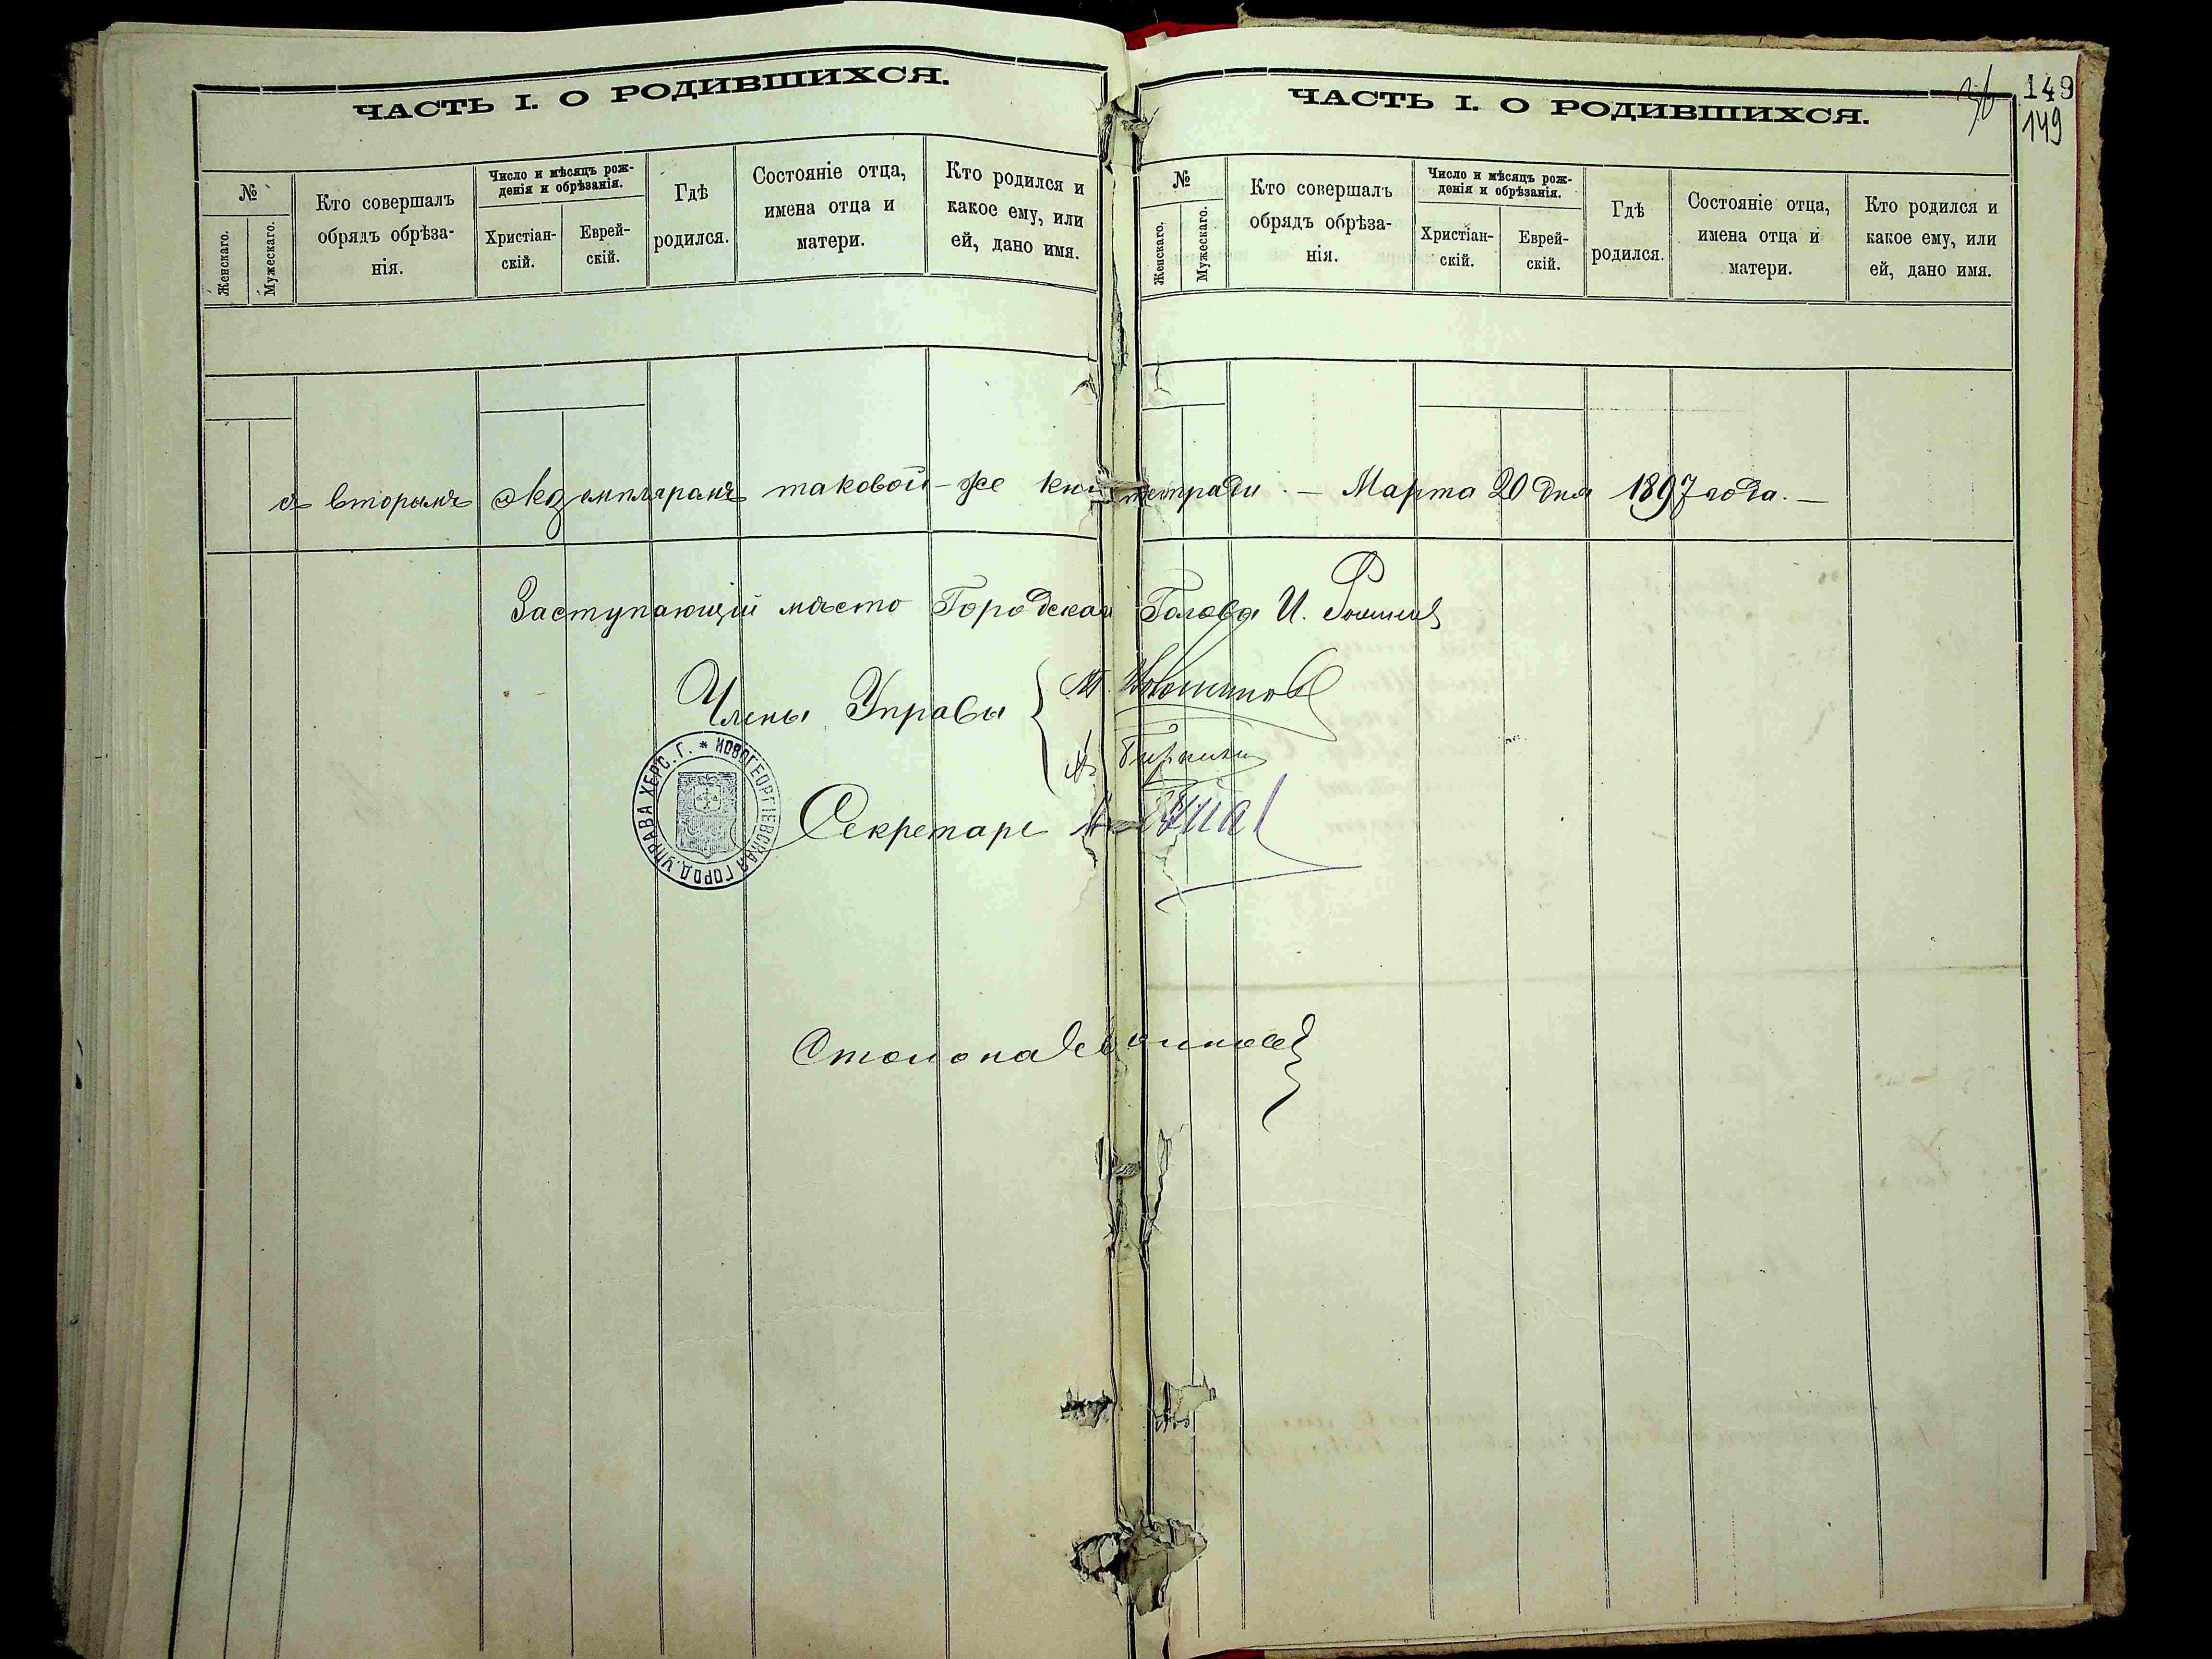 ЧАСТЬ I. О РОДИВШИХСЯ.
№
Женскаго.
Мужескаго.
Кто совершалъ
обрядъ обрѣза-
нія.
Число и мѣсяцъ рож-
денія и обрѣзанія.
Христіан-
скій.
Еврей-
скій.
Гдѣ
родился.
Состояніе отца,
имена отца и
матери.
Кто родился и
какое ему, или
ей, дано имя.
ЧАСТЬ I. О РОДИВШИХСЯ.
36
149
149
№
Женскаго.
Мужескаго.
Кто совершалъ
обрядъ обрѣза-
нія.
Число и мѣсяцъ рож-
денія и обрѣзанія.
Христіан-
скій.
Еврей-
скій.
Гдѣ
родился.
Состояніе отца,
имена отца и
матери.
Кто родился и
какое ему, или
ей, дано имя.
съ вторымъ экземпляромъ таковой-же тетради. — Марта 20 дня 1897 года. —
Заступающій мѣсто Городскаго Головы И.
Члены Управы
Секретарь
НОВОГЕОРГІЕВСКАЯ ГОРОД. УПРАВА ХЕРС. Г. *